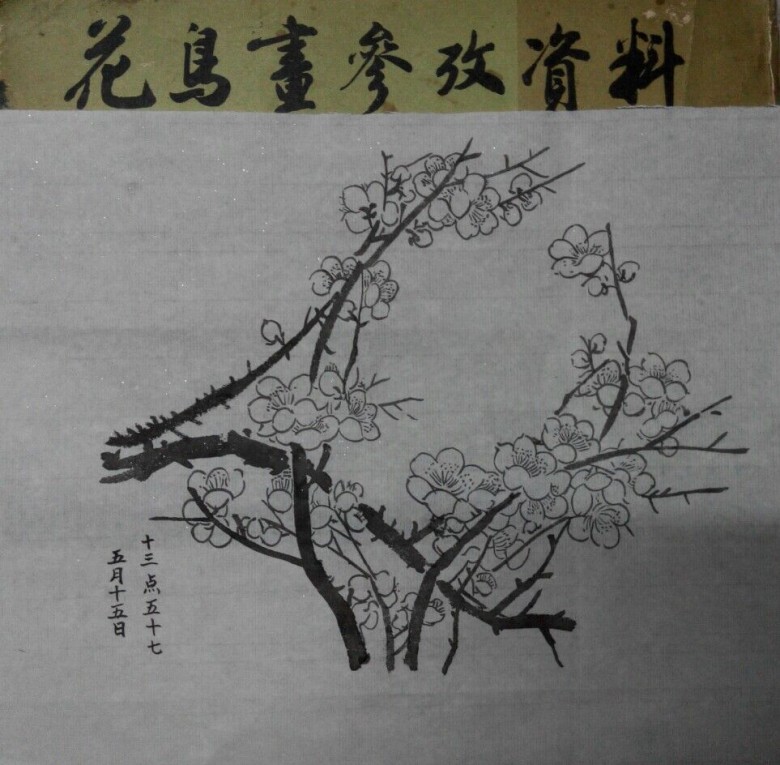 花鳥畫參攷資料
十三点五十七
五月十五日